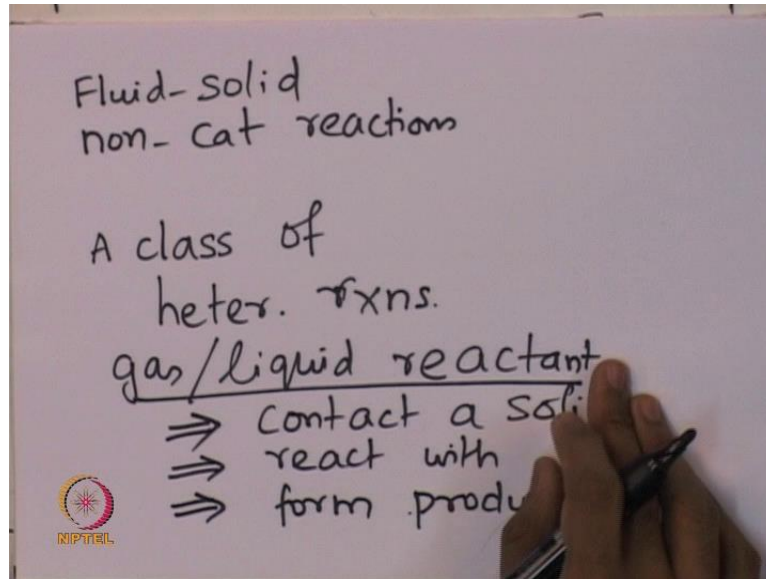 Fluid-solid
non-cat reactions
A class of
heter. rxns.
gas/liquid reactant
⇒ contact a
⇒ react with
⇒ form
NPTEL